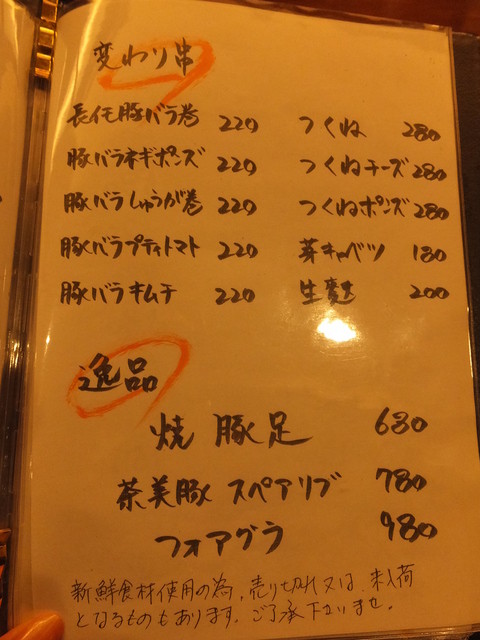 変わり串
長イモ豚バラ巻 220
豚バラネギポンズ 220
豚バラしゅうが巻 220
豚バラプティトマト 220
豚バラキムチ 220
つくね 280
つくねチーズ 280
つくねポンズ 280
芽キャベツ 180
生麩 200
逸品
焼豚足 680
茶美豚 スペアリブ 780
フォアグラ 980
新鮮食材使用の為、売り切れ又は、未入荷
となるものもあります。ご了承下さいませ。